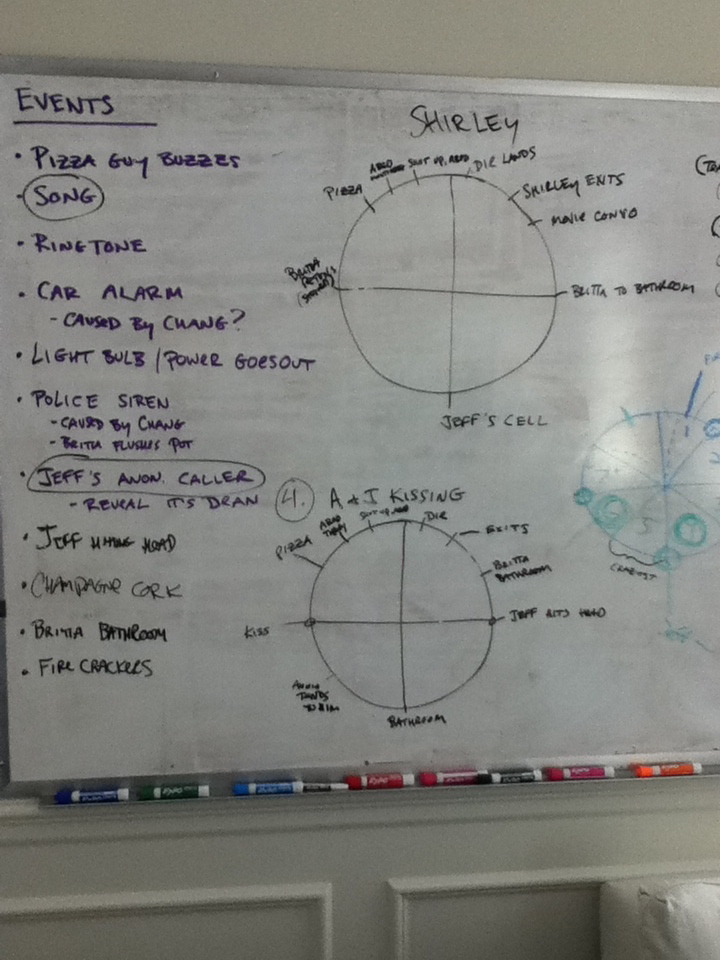 EVENTS
• PIZZA GUY BUZZES
• SONG
• RINGTONE
• CAR ALARM
- CAUSED BY CHANG?
• LIGHT BULB / POWER GOES OUT
• POLICE SIREN
- CAUSED BY CHANG
- BRITTA FLUSHES POT
• JEFF'S ANON. CALLER
- REVEAL IT'S DEAN
• JEFF HITTING HEAD
• CHAMPAGNE CORK
• BRITTA BATHROOM
• FIRE CRACKERS
SHIRLEY
PIZZA
ABED
SHUT UP, ABED
DIE LANDS
SHIRLEY EXITS
MOVIE CONVO
BRITTA TO BATHROOM
JEFF'S CELL
BRITTA
RETURNS
4. A & J KISSING
PIZZA
ABED
SHUT UP, ABED
DIE
EXITS
BRITTA
BATHROOM
JEFF HITS HEAD
BATHROOM
ANNIE
TENDS
TO HIM
KISS
CRAZIEST